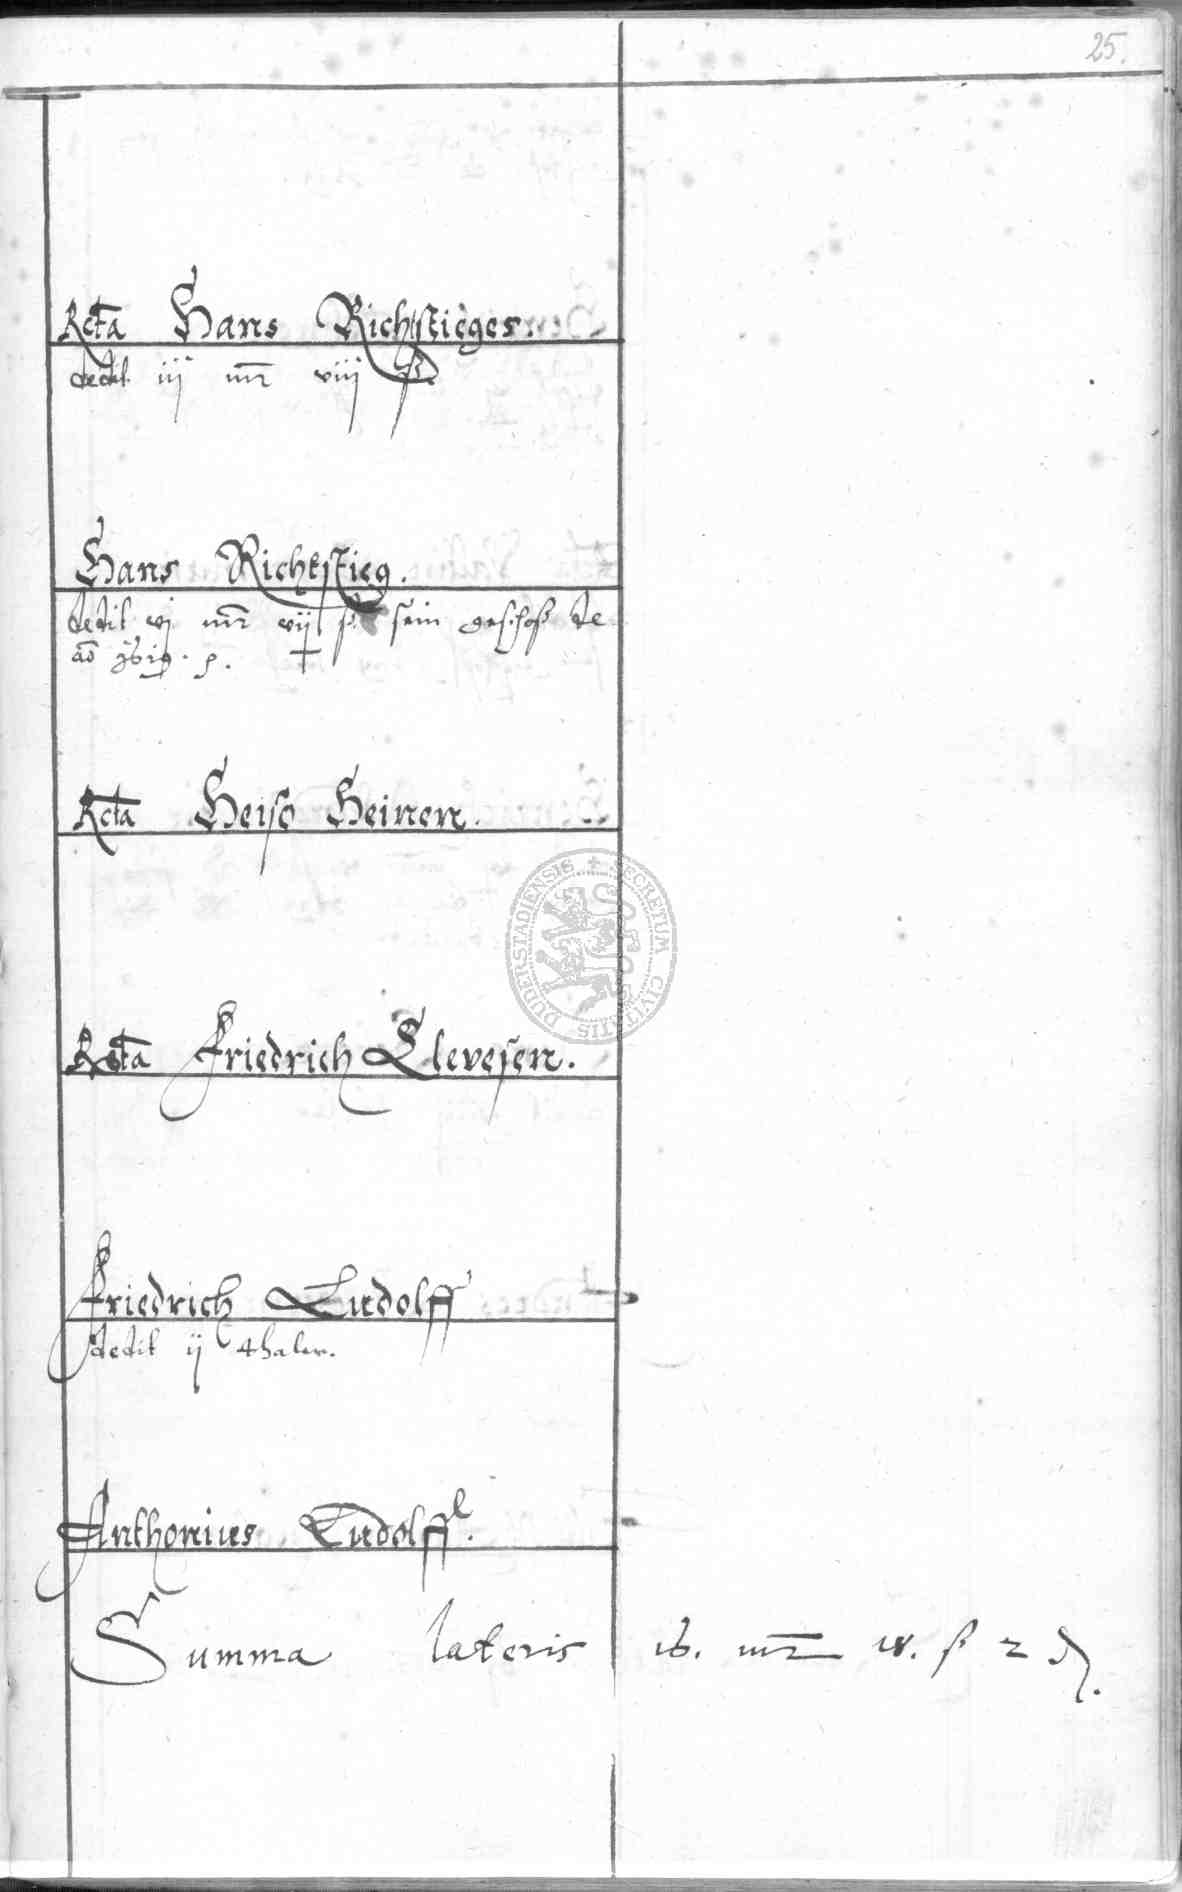 25.
Rcta Hans Richtstieges.
dedit iij mr viij ß.
Hans Richtstieg.
dedit vj mr vij ß. sein geschoß de
ao 1619. p.
Rcta Heiso Heinen.
Rcta Friedrich Clevesen.
Friedrich Ludolff
dedit ij thaler.
Anthonius Ludolff.
Summa lateris 16. mr 18. ß 2 ₰.
SECRETUM CIVITATIS DUDERSTADIENSIS